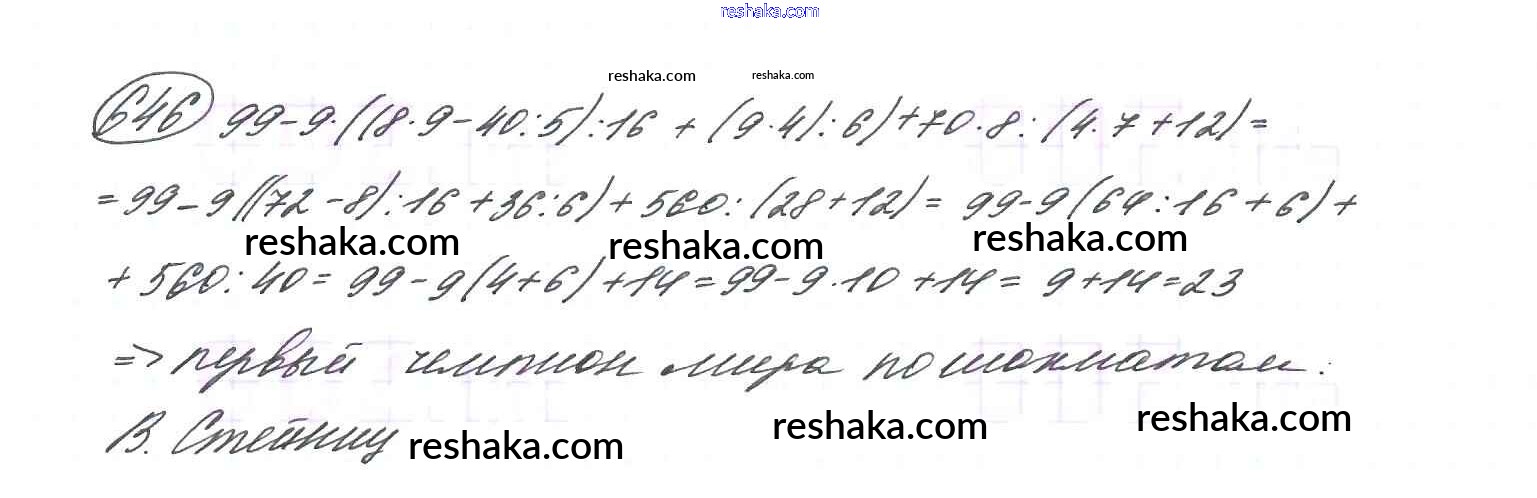 reshaka.com
reshaka.com reshaka.com
646 99-9·((8·9-40:5):16 + (9·4):6)+70·8:(4·7+12)=
=99-9((72-8):16+36:6)+560:(28+12)= 99-9(64:16+6)+
reshaka.com reshaka.com reshaka.com
+560:40= 99-9(4+6)+14=99-9·10+14= 9+14=23
=> первый чемпион мира по шахматам:
В. Стейниц
reshaka.com reshaka.com reshaka.com